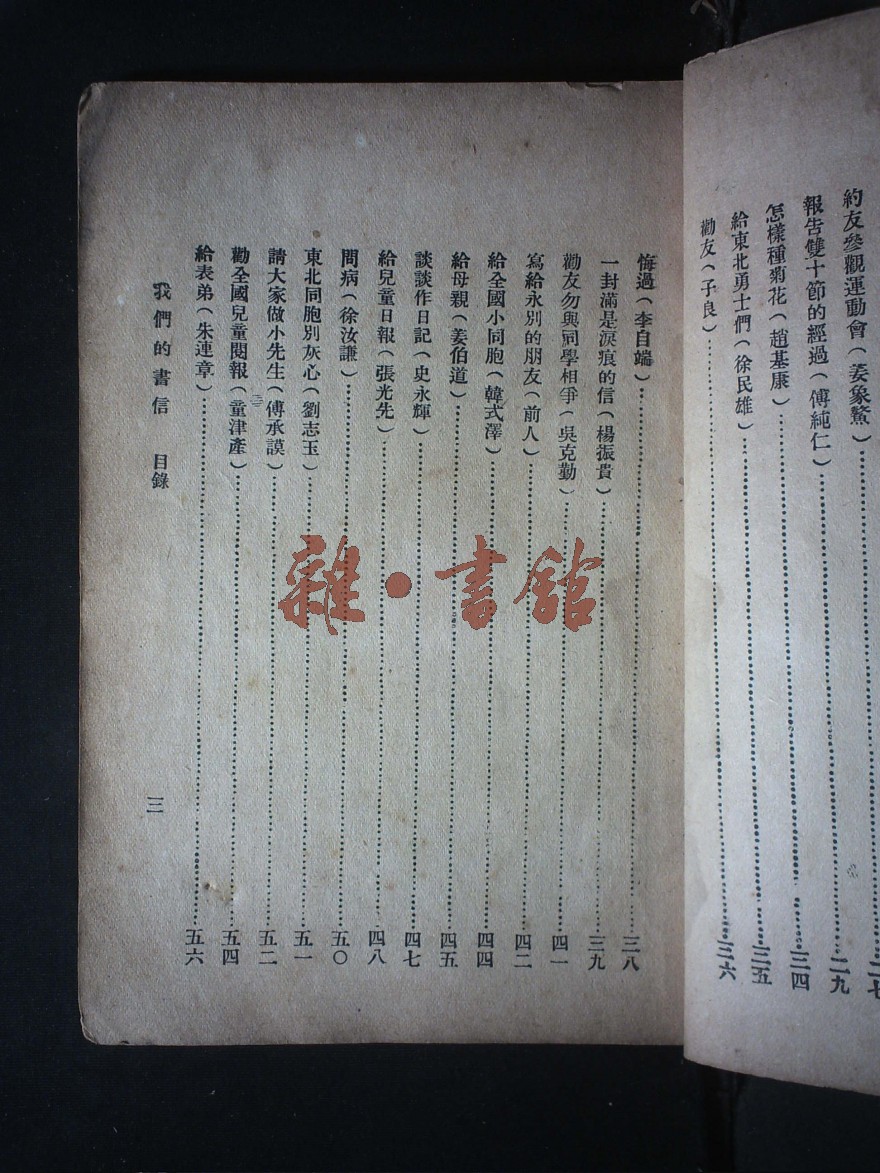 約友參觀運動會（姜象鰲）……二七
報告雙十節的經過（傅純仁）……二九
怎樣種菊花（趙基康）……三四
給東北勇士們（徐民雄）……三五
勸友（子良）……三六
悔過（李自端）……三八
一封滿是淚痕的信（楊振貴）……三九
勸友勿與同學相爭（吳克勤）……四一
寫給永別的朋友（前人）……四二
給全國小同胞（韓式澤）……四四
給母親（姜伯道）……四五
談談作日記（史永輝）……四七
給兒童日報（張光先）……四八
問病（徐汝謙）……五〇
東北同胞別灰心（劉志玉）……五一
請大家做小先生（傅承謨）……五二
勸全國兒童閱報（童津產）……五四
給表弟（朱連章）……五六
我們的書信 目錄
三
雜·書館